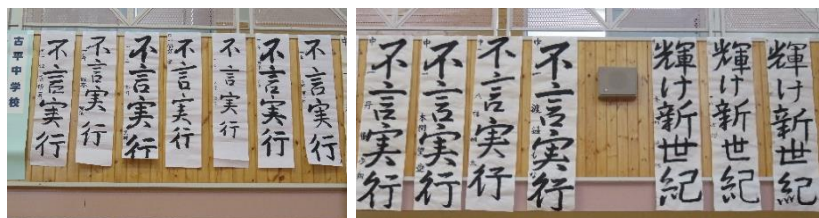 古平中学校
不言実行
不言実行
不言実行
不言実行
不言実行
不言実行
不言実行
不言実行
不言実行
不言実行
不言実行
輝け新世紀
輝け新世紀
輝け新世紀